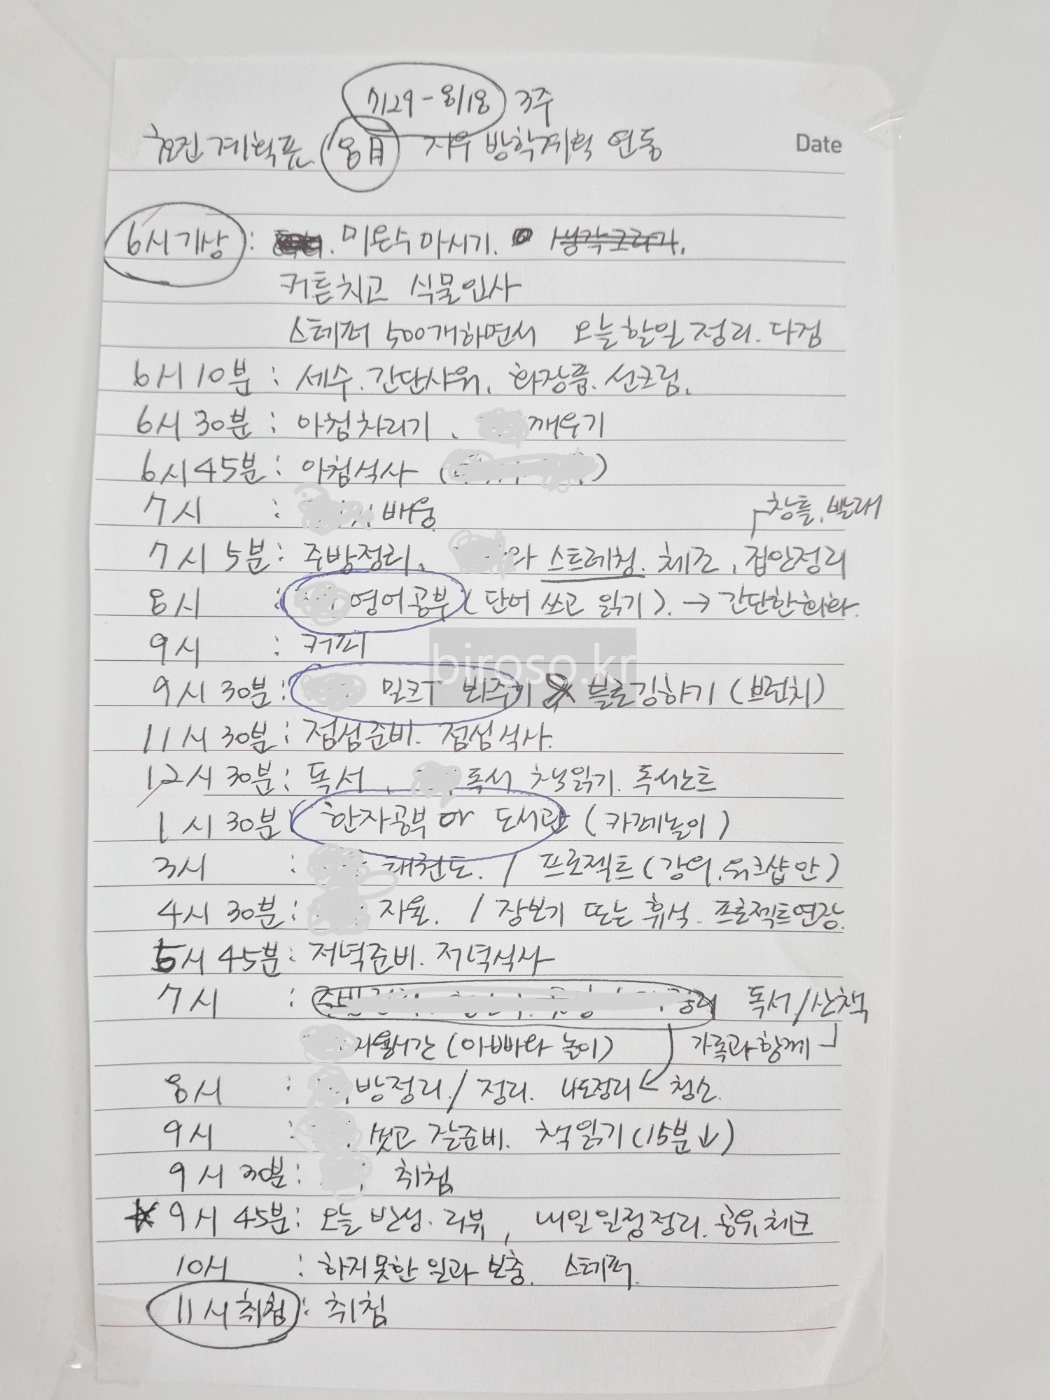 7/29 - 8/18 3주
계획표 8月 지우 방학계획 연동
Date
6시기상 : 미온수마시기.
커튼치고 식물인사
스테퍼 500개하면서 오늘할일 정리. 다짐
6시 10분 : 세수. 간단샤워. 화장품. 선크림.
6시 30분 : 아침차리기. 깨우기
6시 45분 : 아침식사
7시 : 배웅
창틀, 빨래
7시 5분 : 주방정리. 와 스트레칭. 체조. 집안정리
8시 : 영어공부 (단어 쓰고 읽기). → 간단한회화.
9시 : 커피
biroso.kr
9시 30분 : 밀크T 봐주기 블로깅하기 (브런치)
11시 30분 : 점심준비. 점심식사.
12시 30분 : 독서. 독서 책읽기. 독서노트
1시 30분 한자공부 or 도서관 (카페놀이)
3시 : 태권도. / 프로젝트 (강의. 워크샵 안)
4시 30분 : 자율. / 장보기 또는 휴식. 프로젝트연장.
5시 45분 : 저녁준비. 저녁식사
7시 : 독서/산책
자율시간 (아빠와 놀이) 가족과 함께
8시 : 방정리 / 정리. 나도정리 청소.
9시 : 씻고 잘준비. 책읽기 (15분↓)
9시 30분 : 취침
9시 45분 : 오늘 반성. 리뷰, 내일일정정리. 공유체크
10시 : 하지못한 일과 보충. 스테퍼.
11시취침 : 취침